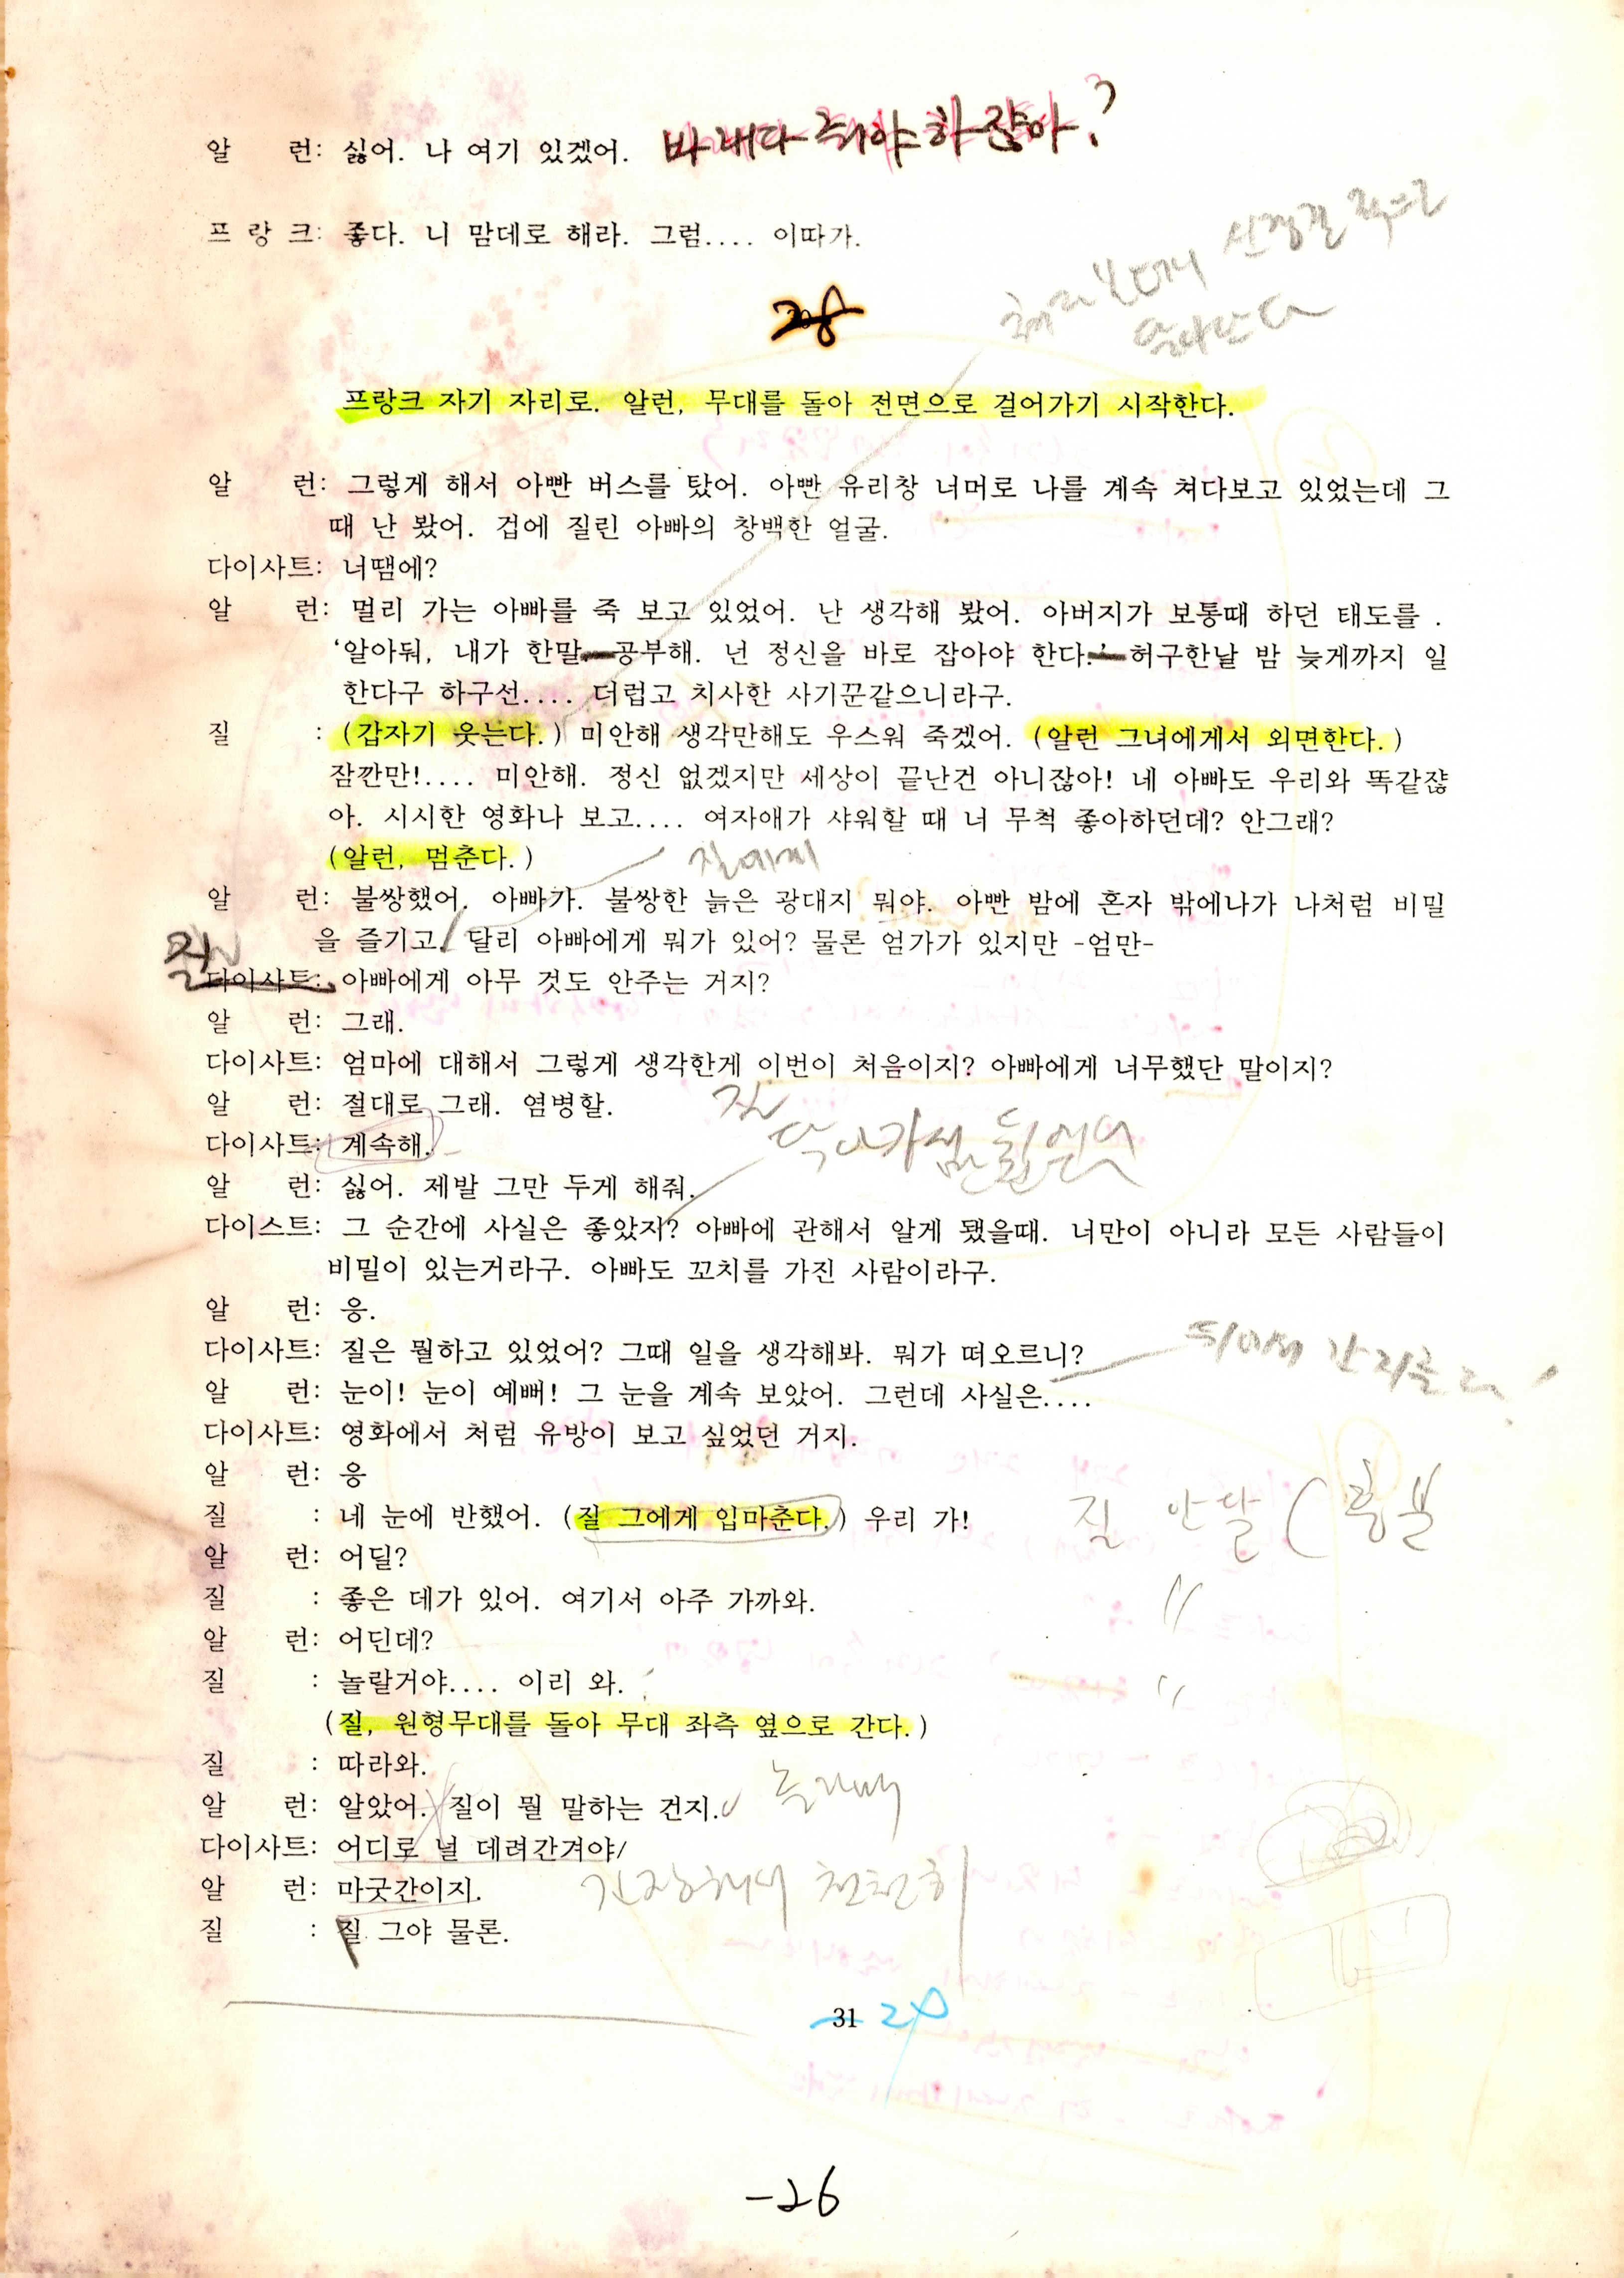 알 런: 싫어. 나 여기 있겠어. 바래다 줘야 하쟎아?
프 랑 크: 좋다. 니 맘데로 해라. 그럼.... 이따가.
28
프랑크 자기 자리로. 알런, 무대를 돌아 전면으로 걸어가기 시작한다.
알 런: 그렇게 해서 아빤 버스를 탔어. 아빤 유리창 너머로 나를 계속 쳐다보고 있었는데 그
때 난 봤어. 겁에 질린 아빠의 창백한 얼굴.
다이사트: 너땜에?
알 런: 멀리 가는 아빠를 죽 보고 있었어. 난 생각해 봤어. 아버지가 보통때 하던 태도를 .
‘알아둬, 내가 한말 공부해. 넌 정신을 바로 잡아야 한다.’ 허구한날 밤 늦게까지 일
한다구 하구선.... 더럽고 치사한 사기꾼같으니라구.
질 : (갑자기 웃는다.) 미안해 생각만해도 우스워 죽겠어. (알런 그녀에게서 외면한다.)
잠깐만!.... 미안해. 정신 없겠지만 세상이 끝난건 아니잖아! 네 아빠도 우리와 똑같쟎
아. 시시한 영화나 보고.... 여자애가 샤워할 때 너 무척 좋아하던데? 안그래?
(알런, 멈춘다.) 질에게
알 런: 불쌍했어. 아빠가. 불쌍한 늙은 광대지 뭐야. 아빤 밤에 혼자 밖에나가 나처럼 비밀
을 즐기고. 달리 아빠에게 뭐가 있어? 물론 엄가가 있지만 -엄만-
질
다이사트: 아빠에게 아무 것도 안주는 거지?
알 런: 그래.
다이사트: 엄마에 대해서 그렇게 생각한게 이번이 처음이지? 아빠에게 너무했단 말이지?
알 런: 절대로 그래. 염병할. 질
다이사트: 계속해.
알 런: 싫어. 제발 그만 두게 해줘.
다이스트: 그 순간에 사실은 좋았지? 아빠에 관해서 알게 됐을때. 너만이 아니라 모든 사람들이
비밀이 있는거라구. 아빠도 꼬치를 가진 사람이라구.
알 런: 응.
다이사트: 질은 뭘하고 있었어? 그때 일을 생각해봐. 뭐가 떠오르니?
알 런: 눈이! 눈이 예뻐! 그 눈을 계속 보았어. 그런데 사실은....
다이사트: 영화에서 처럼 유방이 보고 싶었던 거지.
알 런: 응
질 : 네 눈에 반했어. (질 그에게 입마춘다.) 우리 가! 질 안달 (흥분
알 런: 어딜?
질 : 좋은 데가 있어. 여기서 아주 가까와. 〃
알 런: 어딘데?
질 : 놀랄거야.... 이리 와. 〃
(질, 원형무대를 돌아 무대 좌측 옆으로 간다.)
질 : 따라와.
알 런: 알았어. 질이 뭘 말하는 건지.
다이사트: 어디로 널 데려간겨야/
알 런: 마굿간이지. 긴장해서 천천히
질 : 질 그야 물론.
31 29
-26